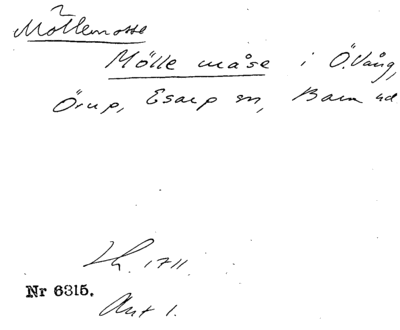 Möllemosse
Mölle måse i Ö. Vång,
Örup, Esarp sn, Bara hd
Lh. 1711.
Nr 6315.
Akt 1.